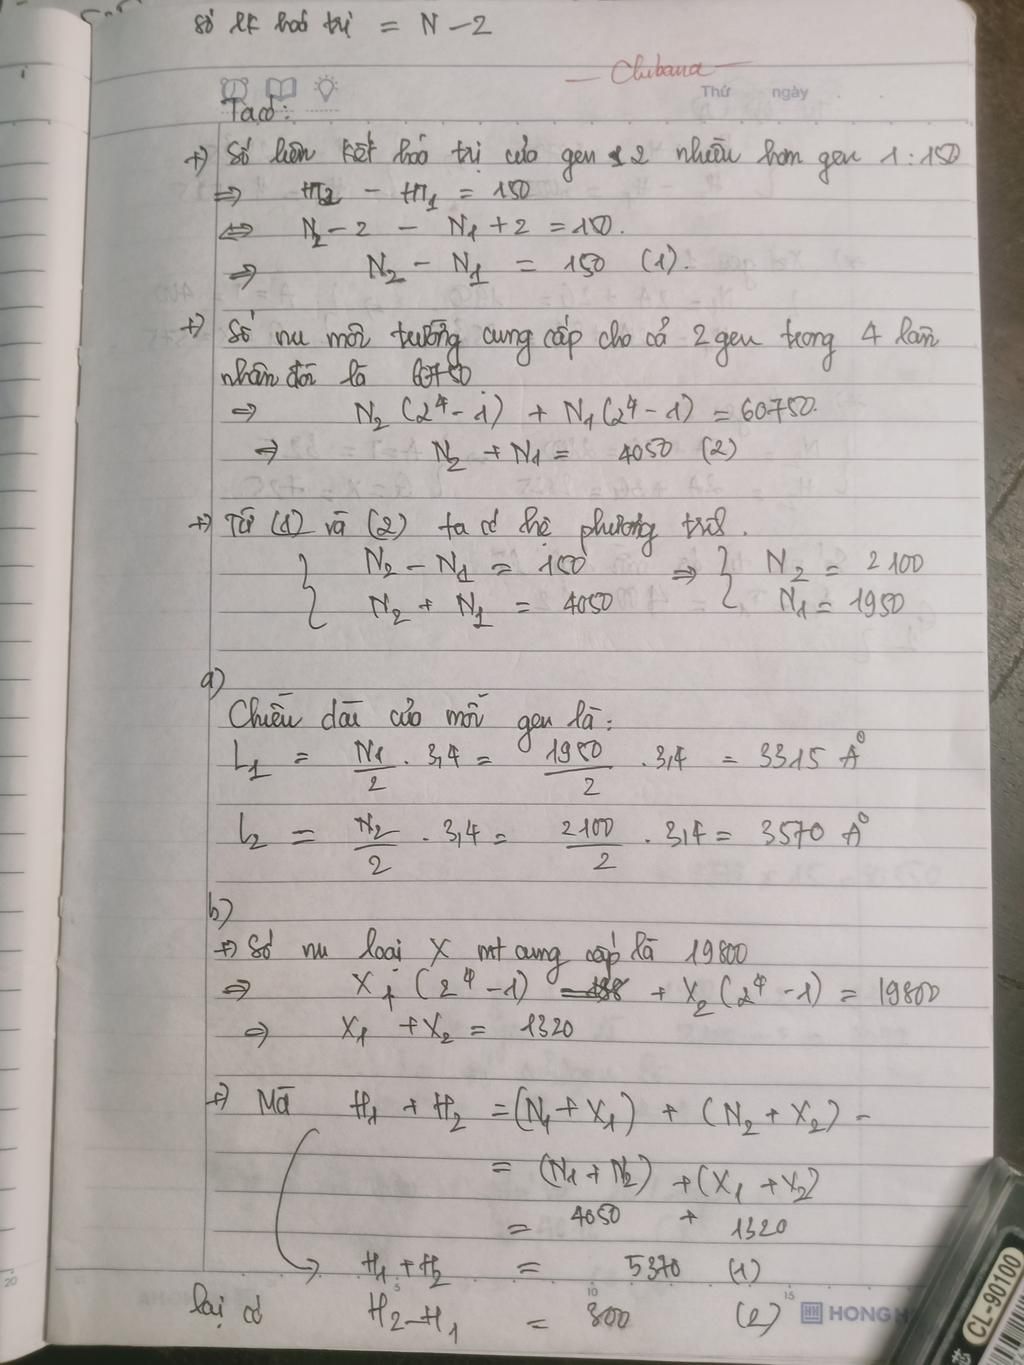 Số lk hoá trị = N - 2
Chibana
Thứ ngày
Ta có:
+) Số liên kết hoá trị của gen 2 nhiều hơn gen 1 : 150
=> HT2 - HT1 = 150
<=> N2 - 2 - N1 + 2 = 150.
=> N2 - N1 = 150 (1).
+) Số nu môi trường cung cấp cho cả 2 gen trong 4 lần
nhân đôi là 60750
=> N2 (2^4 - 1) + N1 (2^4 - 1) = 60750.
=> N2 + N1 = 4050 (2)
+) Từ (1) và (2) ta có hệ phương trình.
{ N2 - N1 = 150 => { N2 = 2100
{ N2 + N1 = 4050 { N1 = 1950
a)
Chiều dài của mỗi gen là:
L1 = N1/2 . 3,4 = 1950/2 . 3,4 = 3315 Å
L2 = N2/2 . 3,4 = 2100/2 . 3,4 = 3570 Å
b)
+) Số nu loại X mt cung cấp là 19800
=> X1 (2^4 - 1) + X2 (2^4 - 1) = 19800
=> X1 + X2 = 1320
+) Mà H1 + H2 = (N1 + X1) + (N2 + X2) =
= (N1 + N2) + (X1 + X2)
= 4050 + 1320
H1 + H2 = 5370 (1)
lại có H2 - H1 = 300 (2)
5 10 15 20
HH HONG H
CL-90100